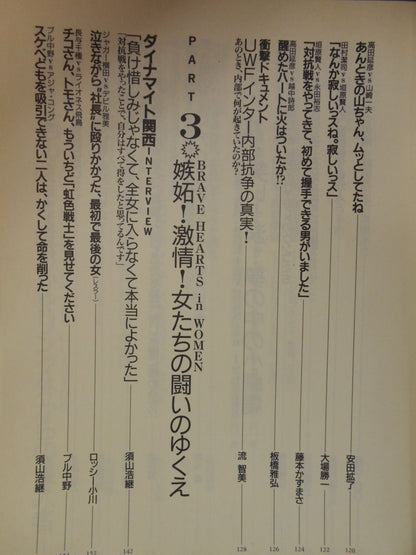 高田延彦vs山崎一夫
あんときの山ちゃん、ムッとしてたね
安田拡了
120
田村潔司vs垣原賢人
「なんか寂しいっスね。寂しいっス」
大場勝一
122
垣原賢人vs永田裕志
「対抗戦をやってきて、初めて握手できる男がいました」
藤本かずまさ
124
高田延彦vs越中詩郎
醒めたハートに火はついたか!?
板橋雅弘
126
衝撃ドキュメント
UWFインター内部抗争の真実!
あのとき、内部で何が起きていたのか?
流 智美
128
PART 3
嫉妬!激情!女たちの闘いのゆくえ
BRAVE HEARTS in WOMEN
ダイナマイト関西INTERVIEW
「負け惜しみじゃなくて、全女に入らなくて本当によかった」
「対抗戦をやったことで、自分はすべて得をしたと思ってるんです」
須山浩継
142
ジャガー横田vsデビル雅美
泣きながら“社長”に殴りかかった、最初で最後の女(レスラー)
ロッシー小川
152
長与千種vsライオネス飛鳥
チコさん、トモさん、もういちど「虹色戦士」を見せてください
ブル中野
ブル中野vsアジャ・コング
スケベどもを吸引できない二人は、かくして命を削った
須山浩継